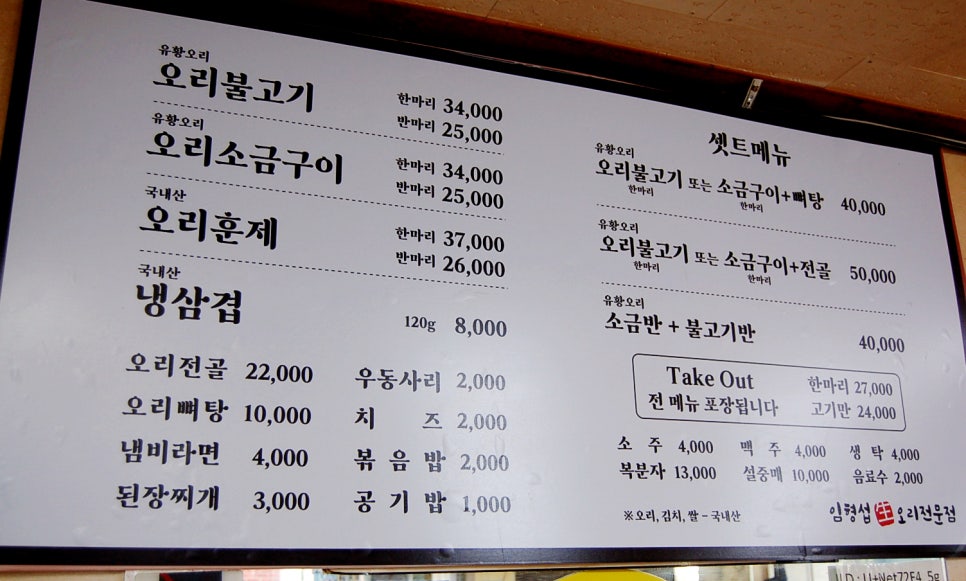 유황오리
오리불고기 한마리 34,000
반마리 25,000
유황오리
오리소금구이 한마리 34,000
반마리 25,000
국내산
오리훈제 한마리 37,000
반마리 26,000
국내산
냉삼겹 120g 8,000
오리전골 22,000 우동사리 2,000
오리뼈탕 10,000 치 즈 2,000
냄비라면 4,000 볶음밥 2,000
된장찌개 3,000 공기밥 1,000
셋트메뉴
유황오리
오리불고기 또는 소금구이+뼈탕 40,000
한마리 한마리
유황오리
오리불고기 또는 소금구이+전골 50,000
한마리 한마리
유황오리
소금반 + 불고기반 40,000
Take Out 한마리 27,000
전 메뉴 포장됩니다 고기만 24,000
소 주 4,000 맥 주 4,000 생 탁 4,000
복분자 13,000 설중매 10,000 음료수 2,000
※오리, 김치, 쌀 - 국내산
임형섭 生 오리전문점